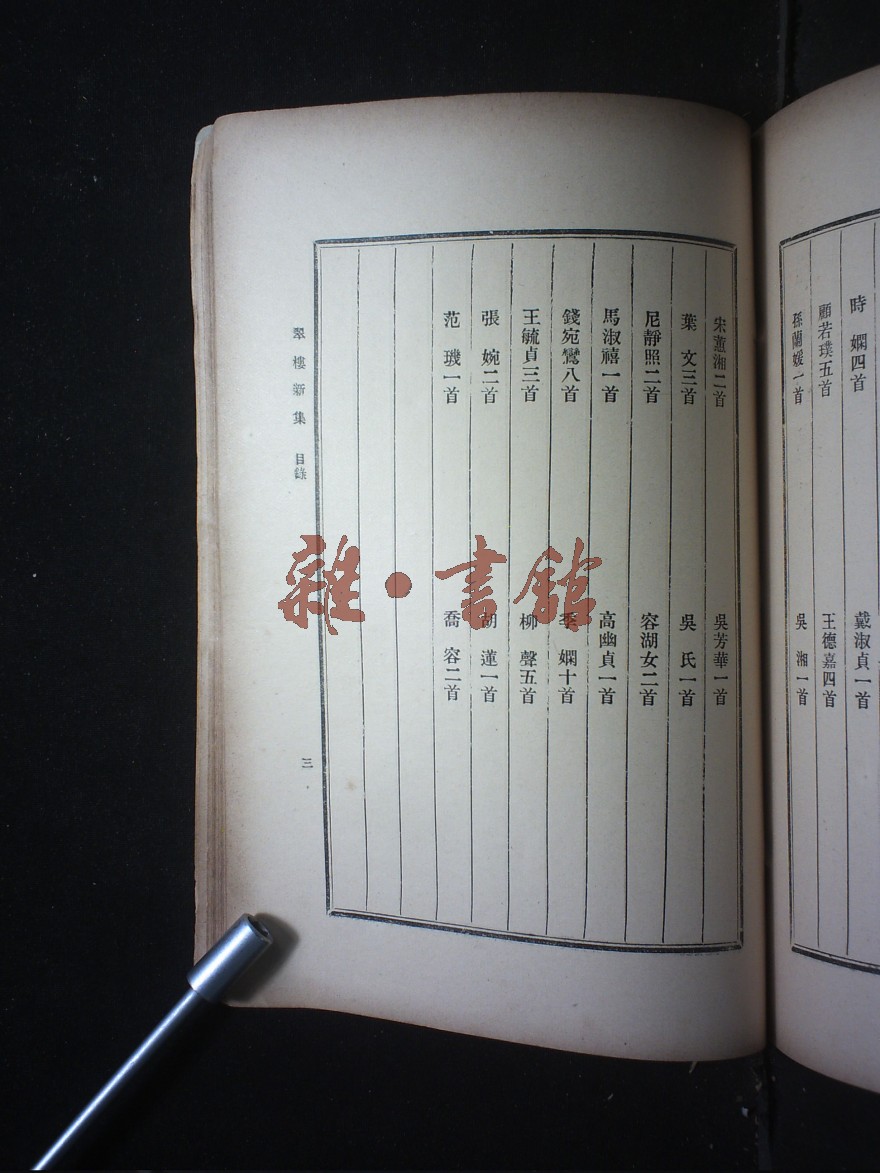 時　嫻四首
戴淑貞一首
顧若璞五首
王德嘉四首
孫蘭媛一首
吳　湘一首
宋蕙湘二首
吳芳華一首
葉　文三首
吳　氏一首
尼靜照二首
容湖女二首
馬淑禧一首
高幽貞一首
錢宛鸞八首
季　嫻十首
王毓貞三首
柳　聲五首
張　婉二首
胡　蓮一首
范　璣一首
喬　容二首
翠樓新集　目錄
三
雜·書館